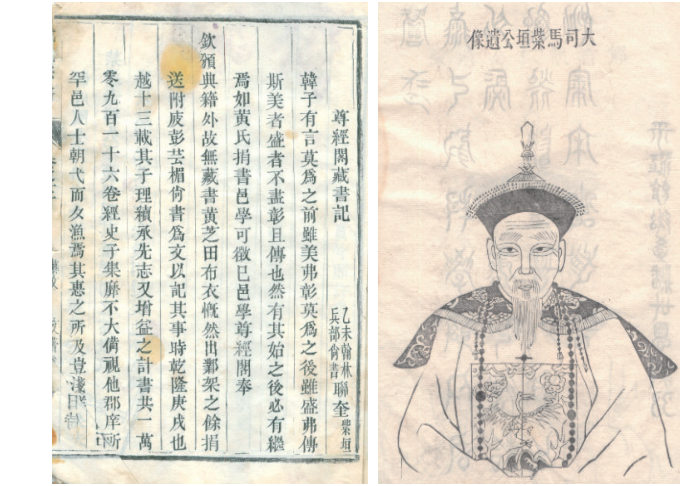 尊經閣藏書記
乙未翰林
兵部尚書
聯奎
紫垣
韓子有言莫爲之前雖美弗彰莫爲之後雖盛弗傳
斯美者盛者不盡彰且傳也然有其始之後必有繼
焉如黃氏捐書邑學可徵已邑學尊經閣奉
欽頒典籍外故無藏書黃芝田布衣慨然出鄴架之餘捐
送附庋彭芸楣尙書爲文以記其事時乾隆庚戌也
越十三載其子理績承先志又增益之計書共一萬
零九百一十六卷經史子集靡不大備視他郡庠所
罕邑人士朝弋而夕漁焉其惠之所及豈淺
大司馬紫垣公遺像